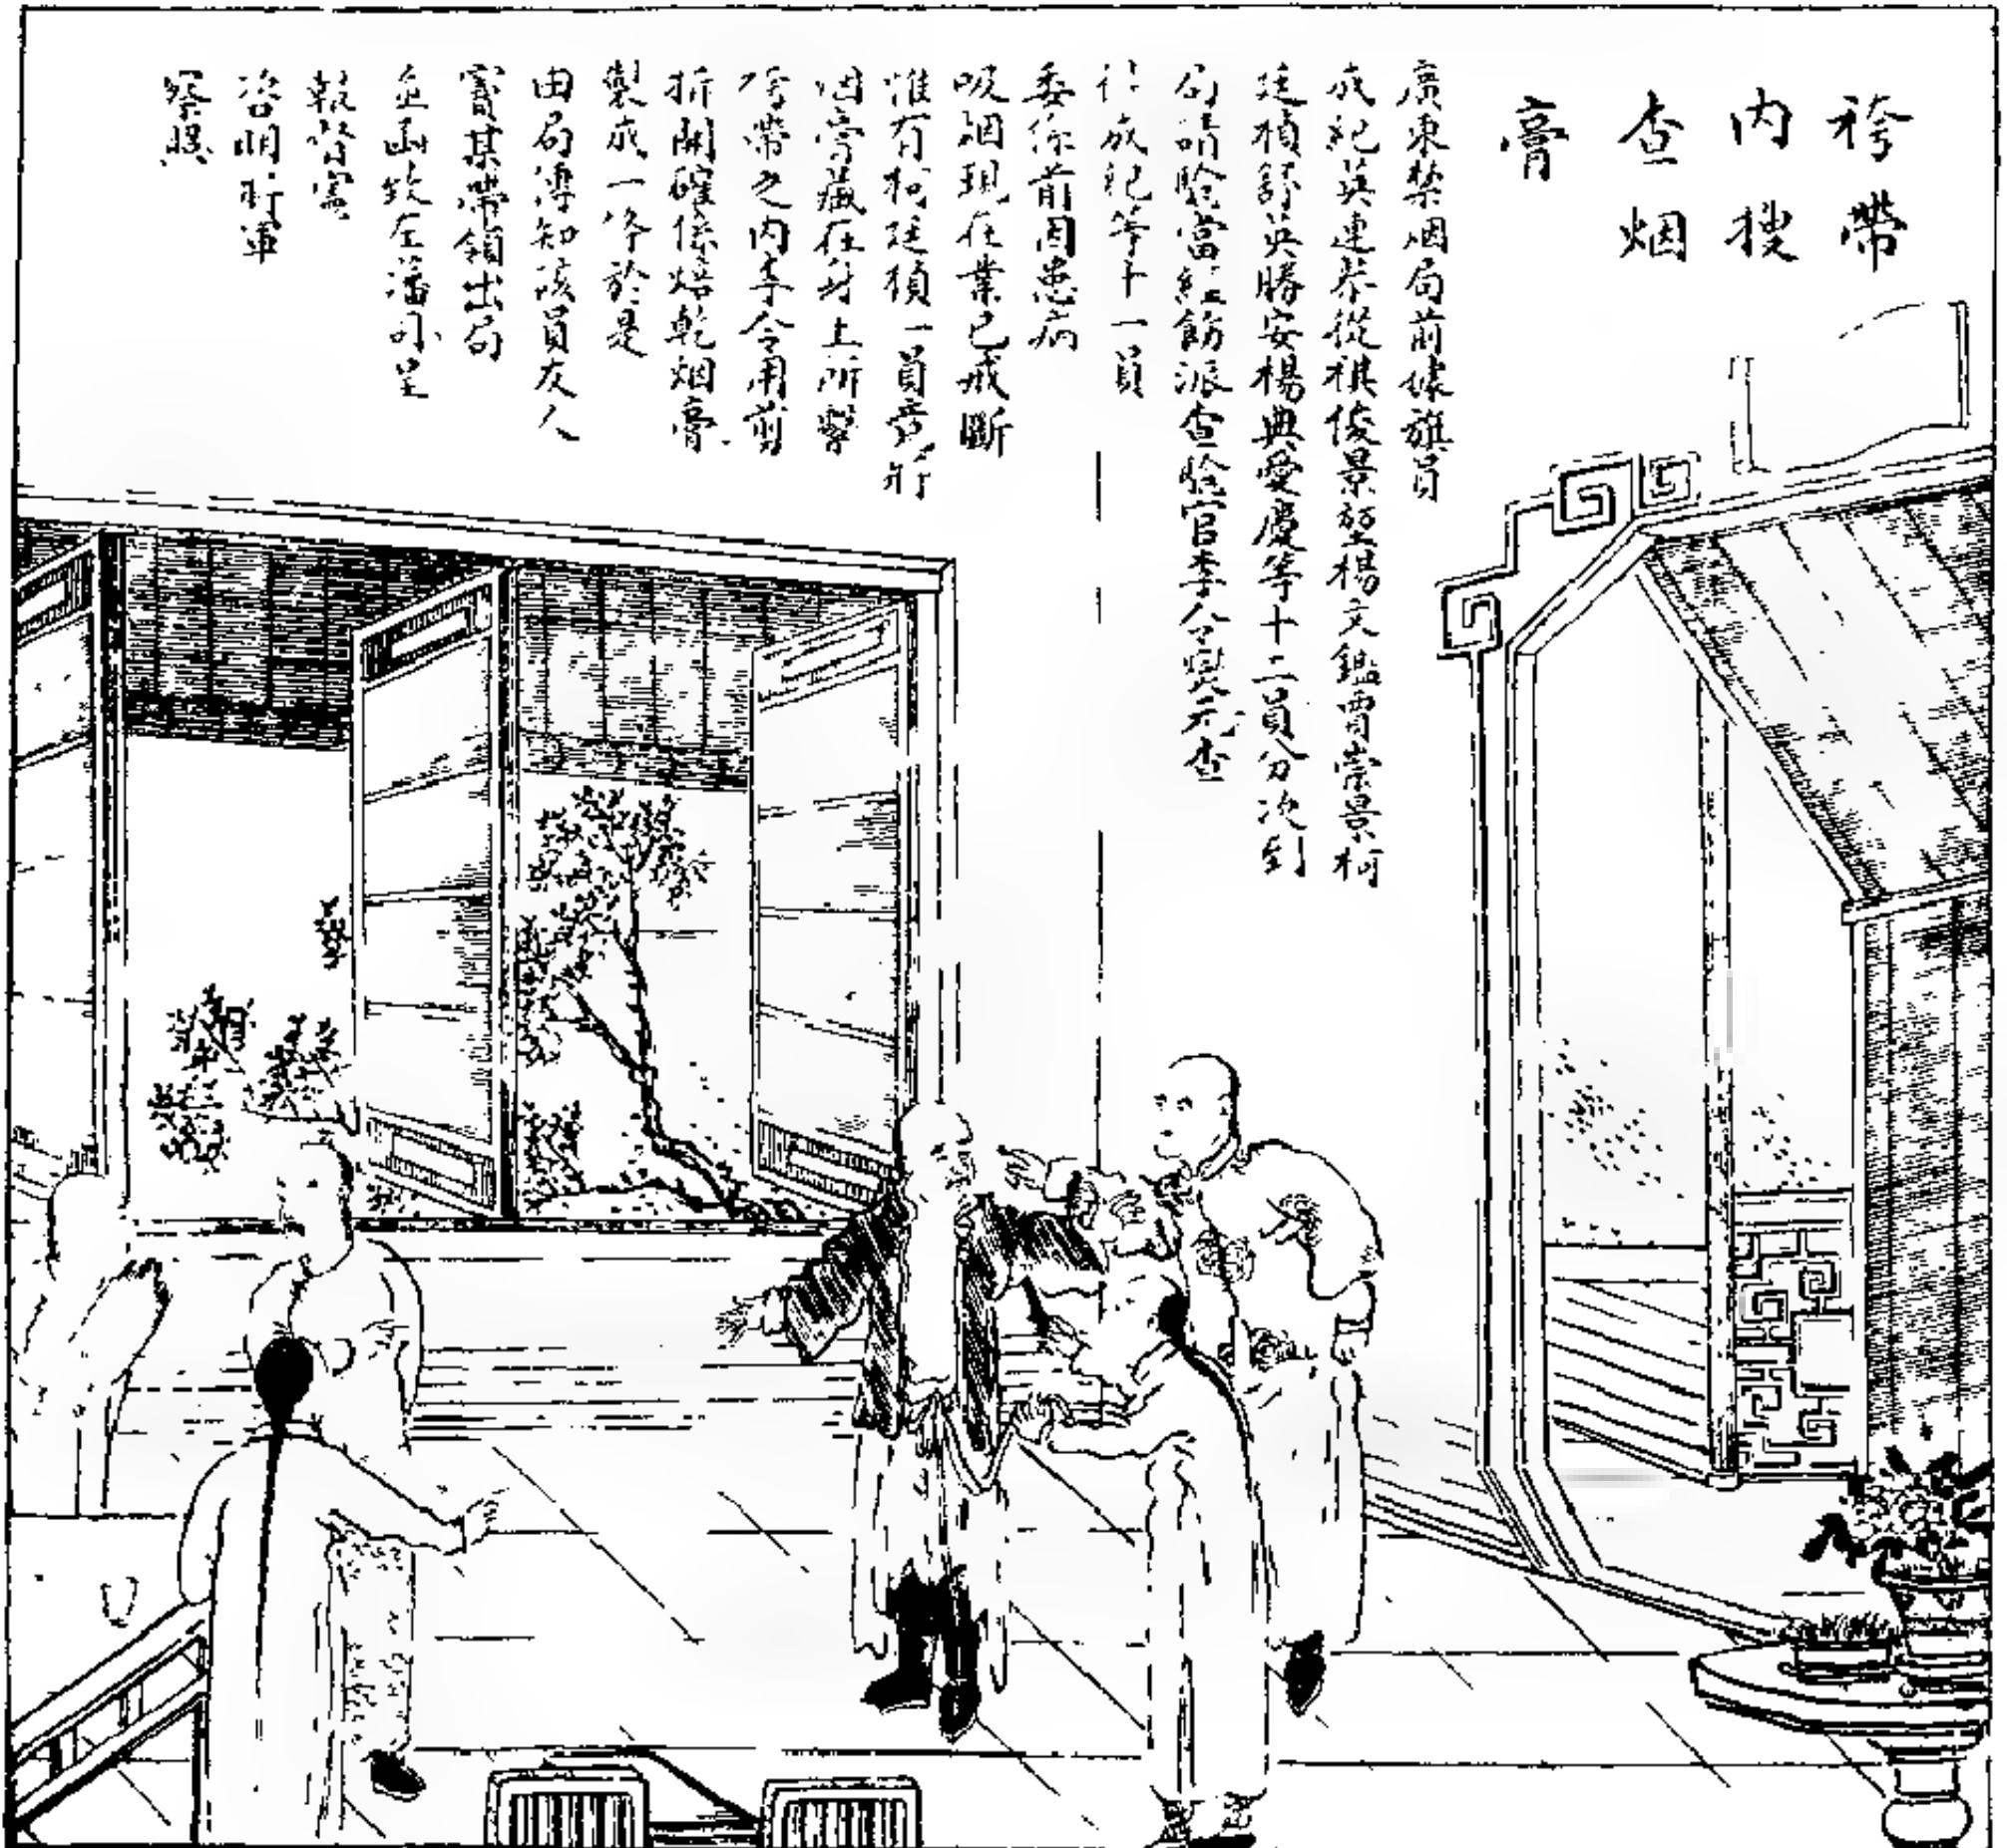 袴帶
內搜
查烟
膏
廣東禁烟局前據旗員
成紀英連恭從祺俊景堃楊文鑑賈崇景柯
廷楨舒英勝安楊典愛慶等十二員分次到
局請驗當經飭派查驗官李令寶元查
成紀等十一員
委係前因患病
吸烟現在業已戒斷
惟有柯廷楨一員竟將
烟膏藏在身上所繫
袴帶之內李令用剪
拆開確係焙乾烟膏
製成一條於是
由局傳知該員友人
竇某帶領出局
並函致左藩司呈
報督憲
咨明將軍
察照